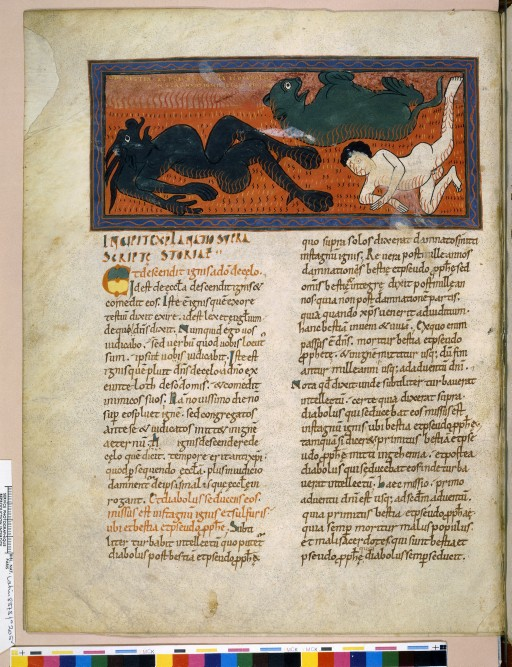 INCIPIT EXPLANATIO SUPRA
SCRIPTE STORIAE
Et descendit ignis a dõ de celo.
Id est de eccła descendit ignis &
comedit eos. Iste ẽ ignis quẽ ex ore
testiũ dixit exire. id est lex euãgłium
de quo dñs dixit. Numquid ego uos
iudicabo. sed uerbũ quod uobis locut'
sum. ipsũ uobis iudicabit. Iste est
ignis quẽ pluit dñs de celo a dño ex
eunte loth de sodomis. & comedit
inimicos suos. Nã nouissimo die nõ
sup eos pluet ignẽ. sed congregatos
ante se & iudicatos mittit in ignẽ
aeternũ. ignis descendere de
celo que dicit. tempore erit antixp̃i.
quod psequendo eccłã. plus in iudicio
damnent de ipsis malis que eccłẽ in
rogant. Et diabolus seducens eos.
missus est in stagnũ ignis et sulfuris
ubi et bestia et pseudo pphẽ. Subti
liter turbabit intellectũ quo putet'
diabolus post bestia et pseudo pphẽ.
quo supra solos dixerat damnatos mitti
in stagnũ ignis. Re uera post mille annos
damnationẽs bestiẽ et pseudo pphẽ. sed
omis bestiẽ integrẽ dixit post mille an
nos. quia non post damnationẽ partis.
quia quando xp̃s uenerit ad uiditium.
hanc bestiã inueniet uiua. Ex quo enim
passus ẽ dñs. moritur bestia et pseudo
pphete. & in ignẽ mittitur usq; dũ fini
antur mille anni usq; ad aduentũ dñi.
Nota qd dixit unde subtiliter turbauerat
intellectũ. certe quia dixerat supra.
diabolus qui seducebat eos missus est
in stagnũ ignis ubi bestia et pseudo pphẽ.
tamquã si diceret primitus bestia et pse
udo pphẽ mitti in gehenna. et postea
diabolus qui seducebat eos. inde turba
uerat intellectũ. Haec missio. primo
aduentu dñi est usq; ad sedm̃ aduentũ.
quia primitus bestia et pseudo pphẽ.
quia semp moritur malus populus.
et mali sacerdotes. qui sunt bestia et
pseudo pphẽ. quia diabolus semp seduceit.